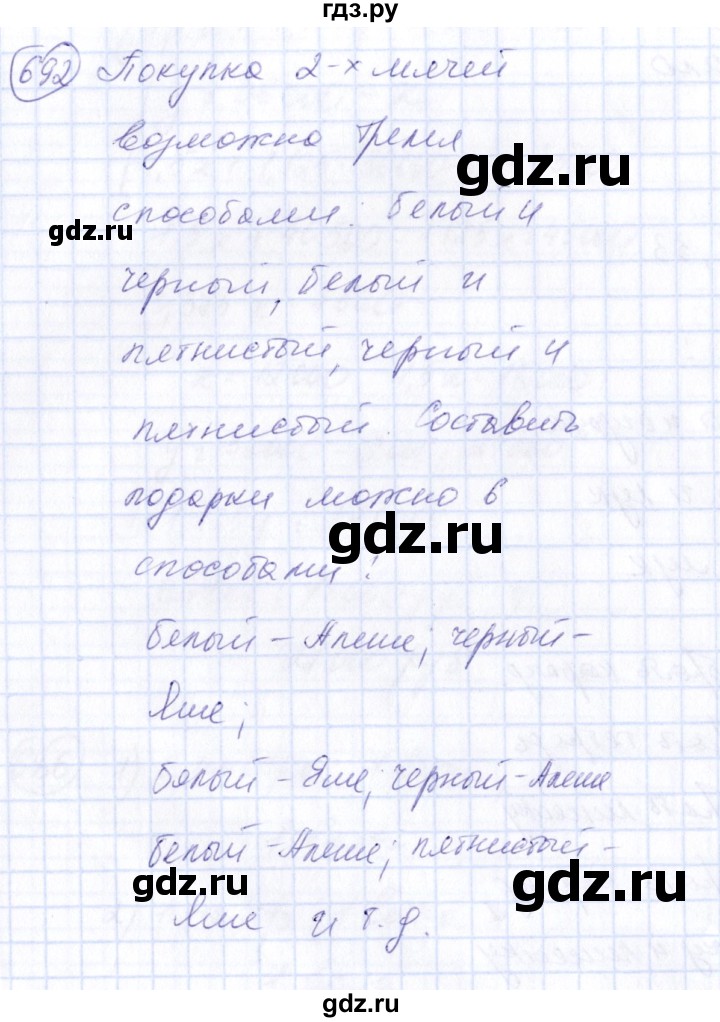 гдз.ру
692 Покупка 2-х мячей
возможна тремя
gdz.ru
способами: белый и
gdz.ru
черный, белый и
пятнистый, черный и
пятнистый. Составить
подарки можно 6
gdz.ru
способами:
белый - Алеше; черный-
Яше;
белый - Яше; черный-Алеше
белый-Алеше; пятнистый-
gdz.ru
gdz.ru
Яше и т.д.
gdz.ru